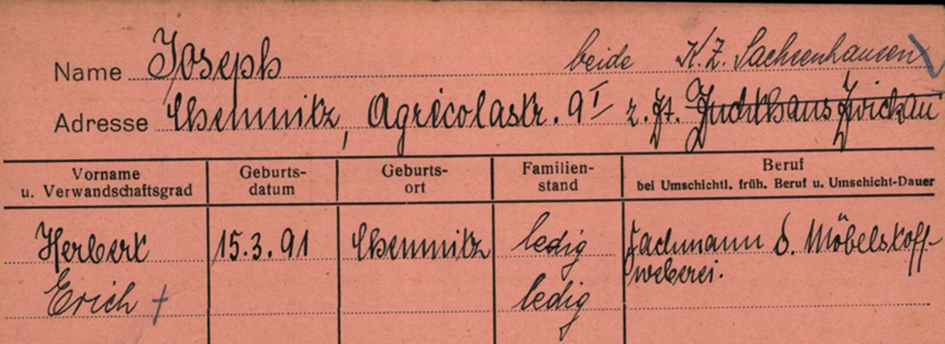 Name Joseph beide K.Z. Sachsenhausen
Adresse Chemnitz, Agricolastr. 9 I z. Zt. Zuchthaus Zwickau
Vorname u. Verwandschaftsgrad Geburts-datum Geburts-ort Familien-stand Beruf bei Umschichtl. früh. Beruf u. Umschicht-Dauer
Herbert 15.3.91 Chemnitz ledig Fachmann d. Möbelstoff-
weberei.
Erich + ledig